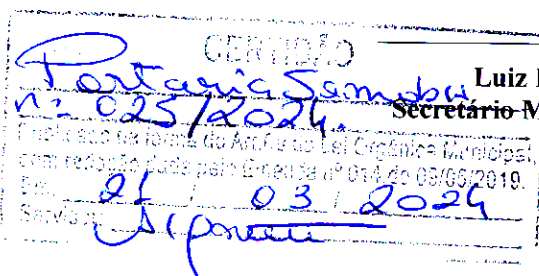 CERTIDÃO
Portaria Semob
Luiz
nº 025/2024.
Secretário M
Publicado na forma do Art. da Lei Orgânica Municipal,
com redação dada pela Emenda nº 014 de 09/05/2019.
Em, 21 / 03 / 2024
Servidor